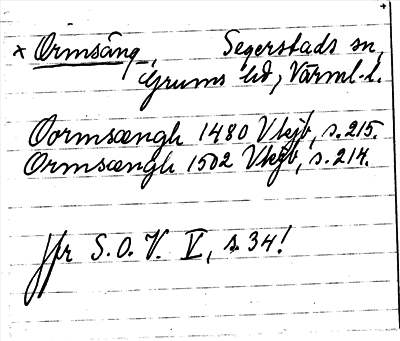 × Ormsäng, Segerstads sn,
Grums hd, Värml. l.
Oormsængh 1480 Vkjb, s. 215.
Ormsængh 1502 Vkjb, s. 214.
Jfr S.O.V. V, s. 34!